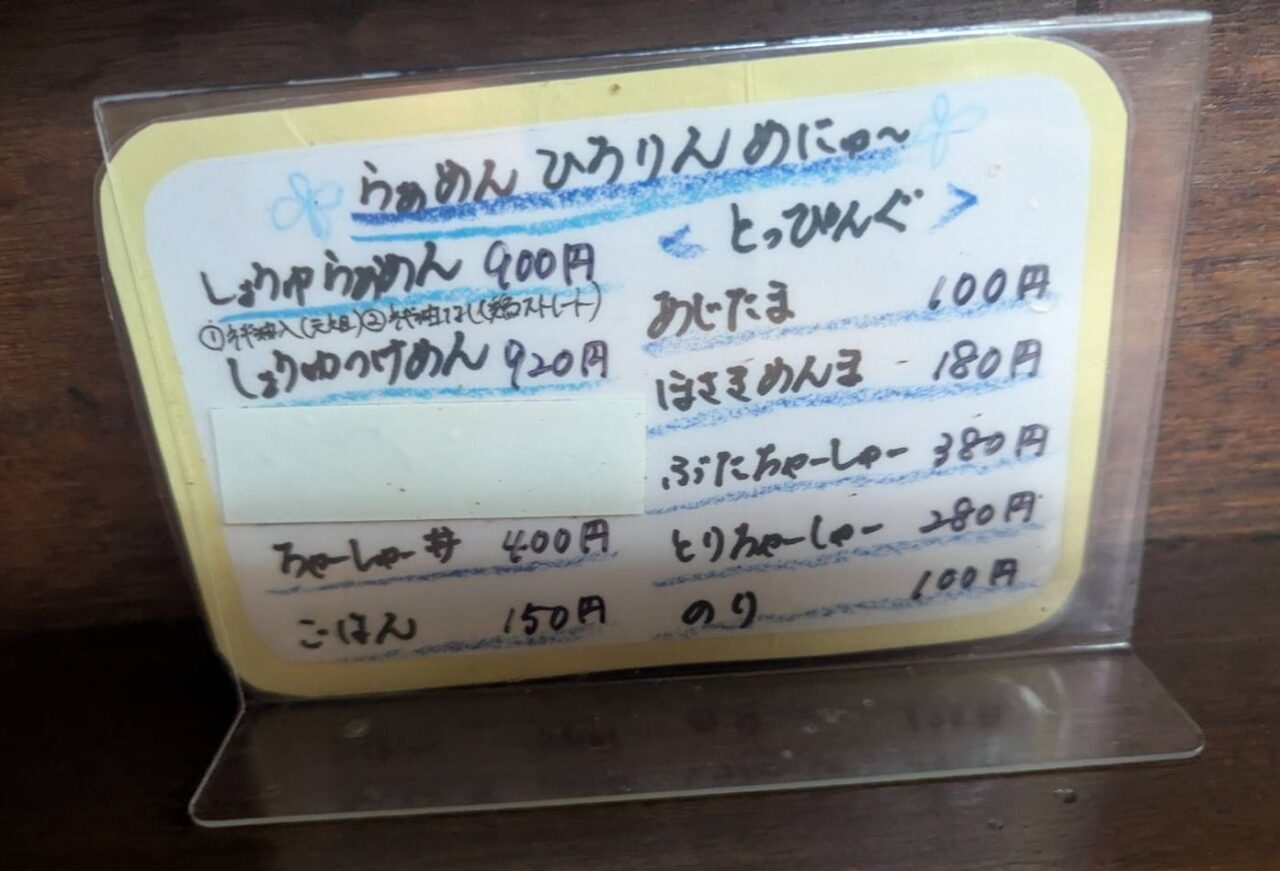 らぁめん ひろりん めにゅ〜
しょうゆらぁめん 900円
①ネギ油入(元祖)②ネギ油なし(鶏ストレート)
しょうゆつけめん 920円
ちゃーしゅー丼 400円
ごはん 150円
< とっぴんぐ >
あじたま 100円
ほさきめんま 180円
ぶたちゃーしゅー 380円
とりちゃーしゅー 280円
のり 100円